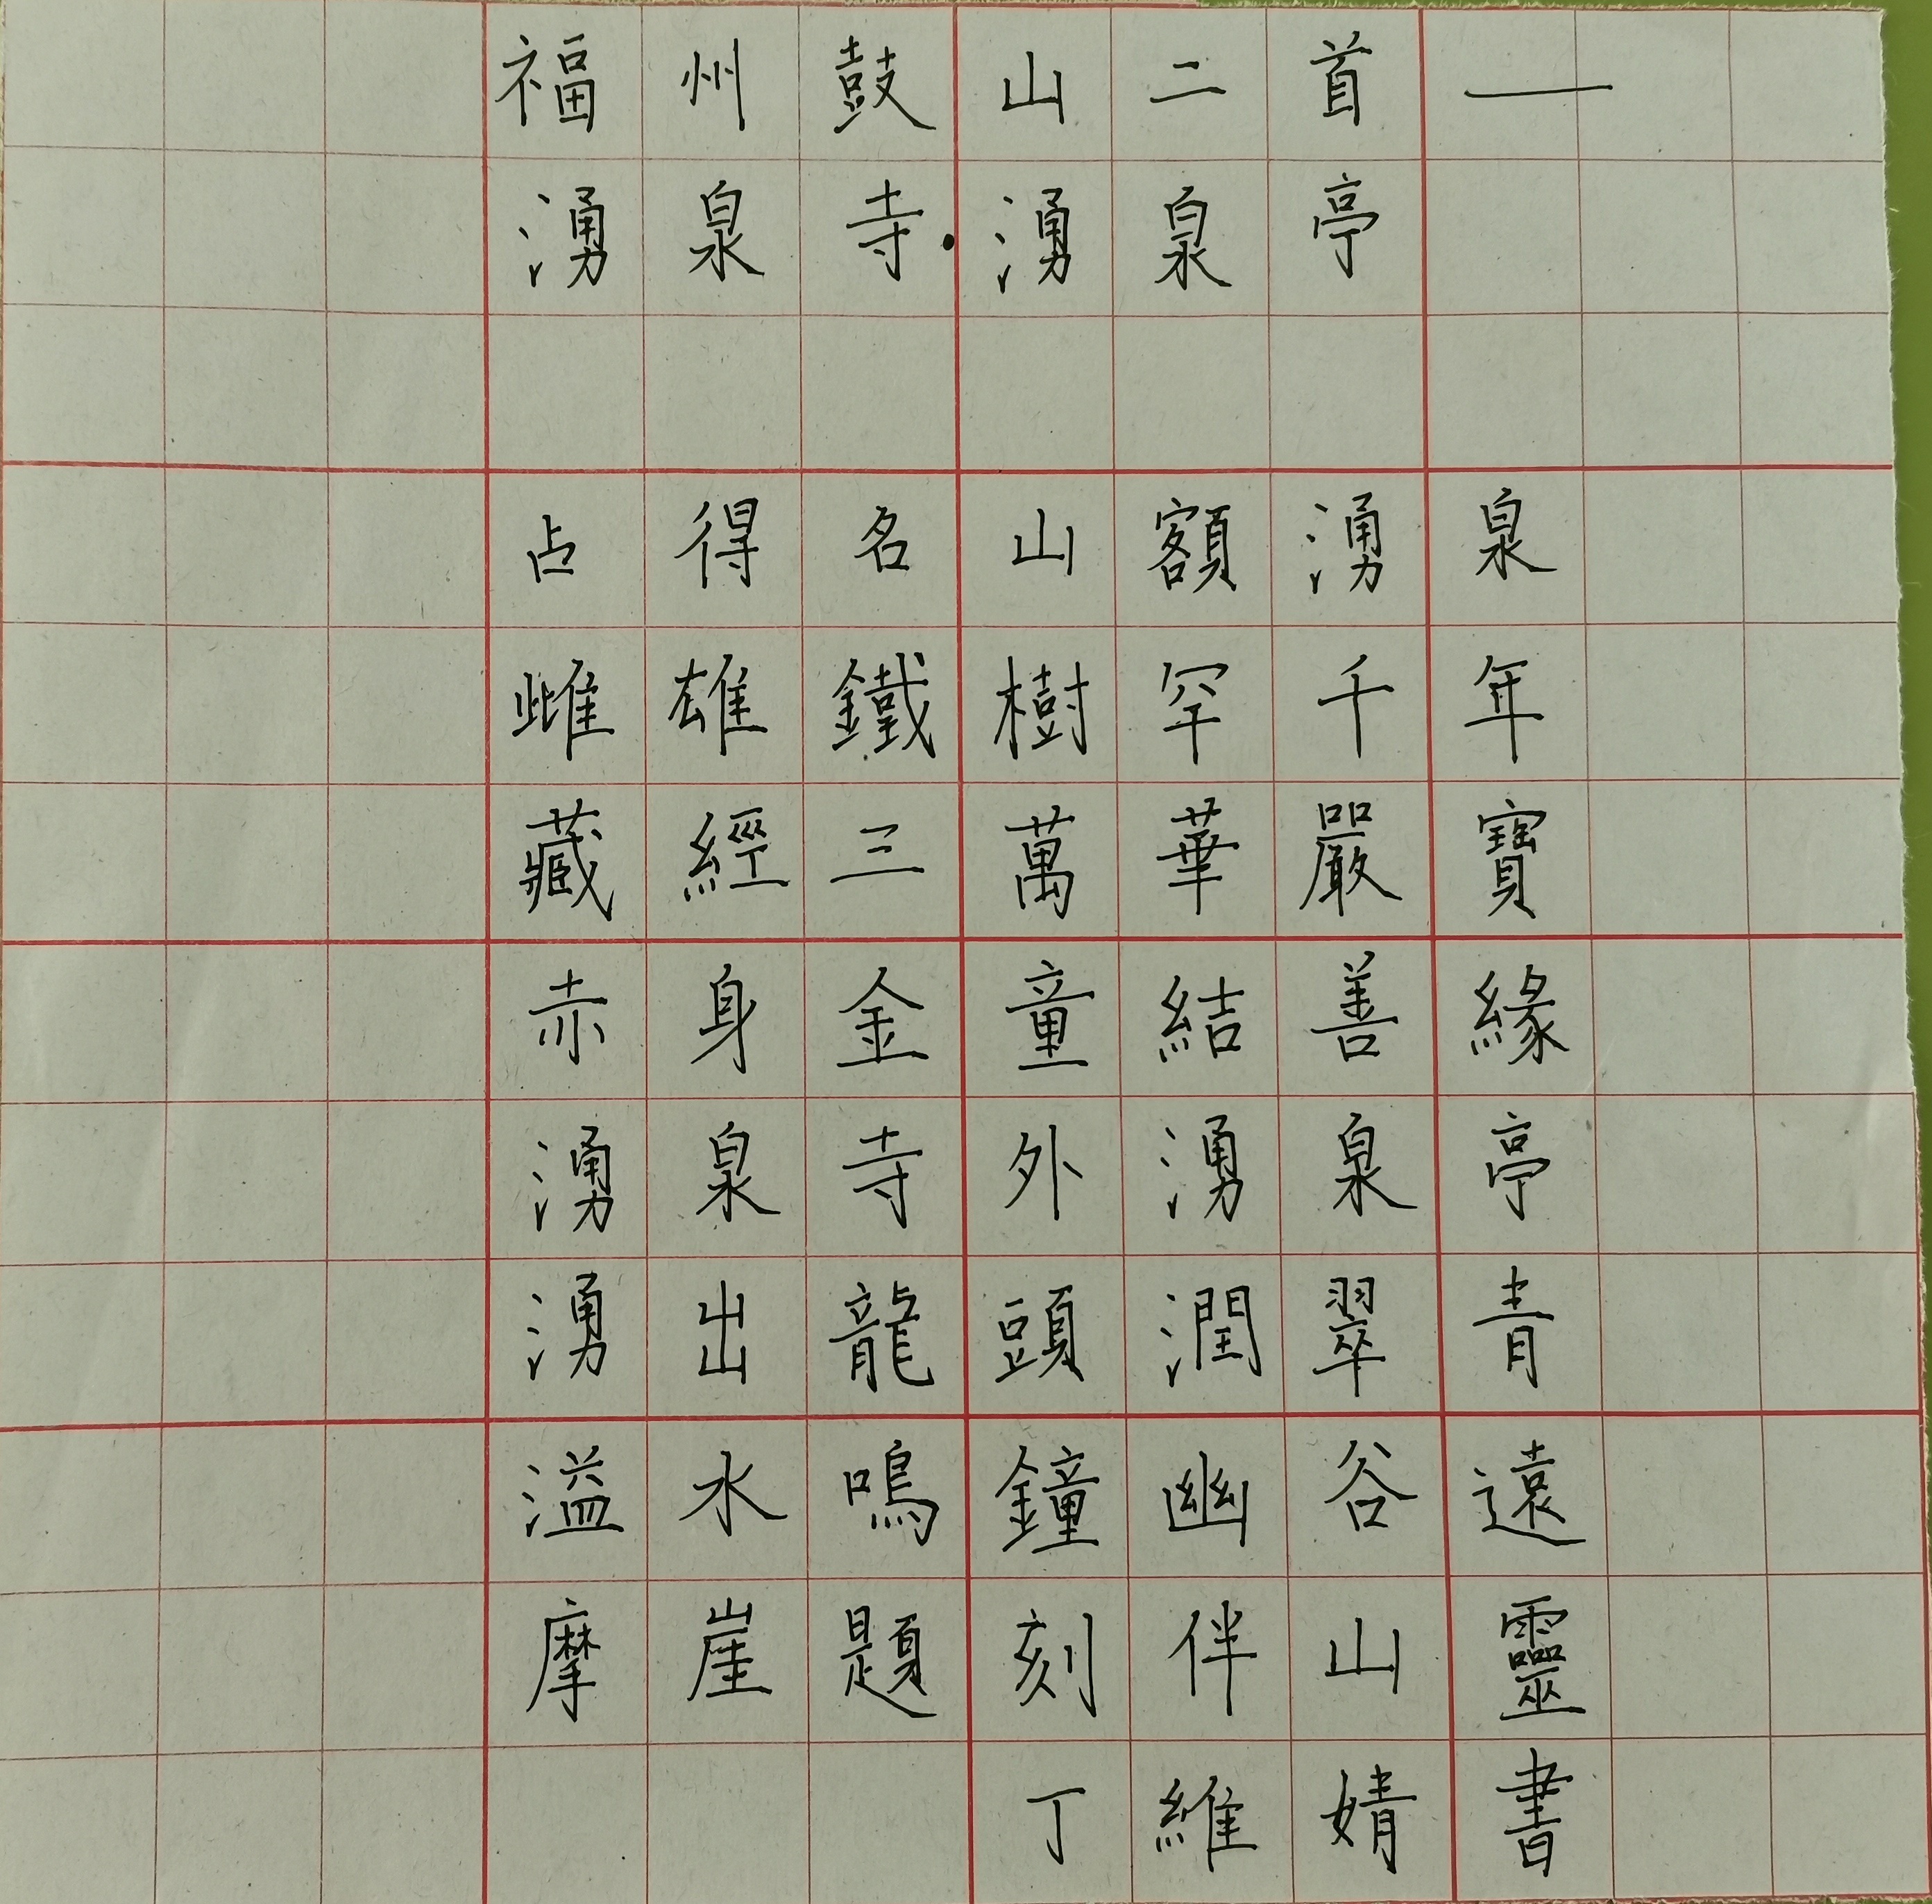 福州鼓山二首——
湧泉寺·湧泉亭
占得名山額湧泉
雌雄鐵樹罕千年
藏經三萬華嚴寶
赤身金童結善緣
湧泉寺外湧泉亭
湧出龍頭潤翠青
溢水鳴鐘幽谷遠
摩崖題刻伴山靈
丁維婧書